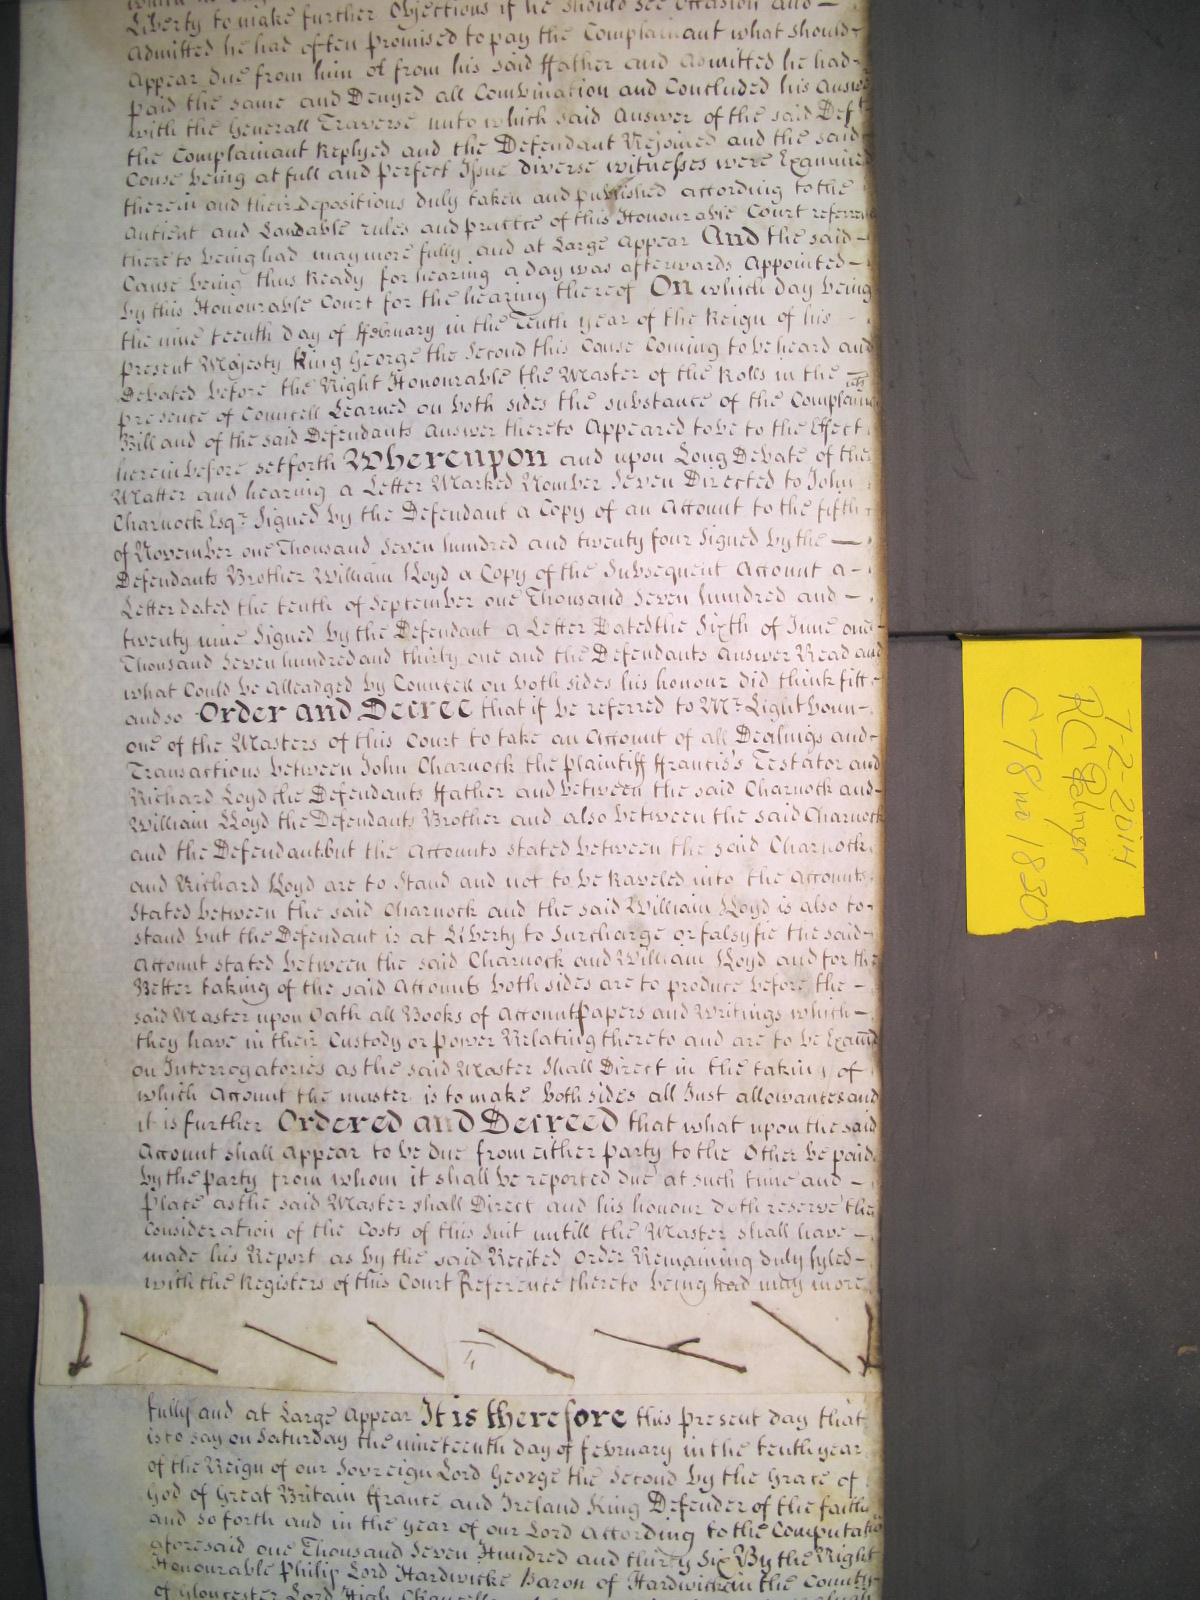 Liberty to make further Objections if he should see Occasion and
Admitted he had often promised to pay the Complainant what should
Appear due from him or from his said ffather and Admitted he had
paid the same and Denyed all Combination and Concluded his Answer
with the Generall Traverse unto which said Answer of the said Deft
the Complainant Replyed and the Defendant Rejoined and the said
Cause being at full and perfect Issue diverse witnesses were Examined
therein and their Depositions duly taken and published according to the
Antient and Laudable rules and practce of this Honourable Court referrence
thereto being had may more fully and at Large Appear And the said
Cause being thus Ready for hearing a day was afterwards Appointed
by this Honourable Court for the hearing thereof On which day being
the nine teenth day of ffebruary in the Tenth year of the Reign of his
present Majesty King George the Second this Cause Coming to be heard and
Debated before the Right Honourable the Master of the Rolls in the
presence of Councell Learned on both sides the substance of the Complainants
Bill and of the said Defendants Answer thereto Appeared to be to the Effect
herein before set forth Whereupon and upon Long Debate of the
Matter and hearing a Letter Marked Number Seven Directed to John
Charnock Esqr. Signed by the Defendant a Copy of an Account to the fifth
of November one Thousand Seven hundred and twenty four Signed by the
Defendants Brother William Lloyd a Copy of the Subsequent Account a
Letter dated the tenth of September one Thousand Seven hundred and
twenty nine Signed by the Defendant a Letter Dated the Sixth of June one
Thousand Seven hundred and thirty one and the Defendants Answer Read and
what Could be Alleadged by Councell on both sides his honour did think fitt
and so Order and Decree that it be referred to Mr. Lightboun
one of the Masters of this Court to take an Account of all Dealings and
Transactions between John Charnock the plaintiff ffrancis's Testator and
Richard Loyd the Defendants ffather and between the said Charnock and
William Lloyd the Defendants Brother and also between the said Charnock
and the Defendant but the Accounts stated between the said Charnock
and Richard Lloyd are to Stand and not to be Raveled into the Accounts
stated between the said Charnock and the said William Lloyd is also to
stand but the Defendant is at Liberty to Surcharge or falsyfie the said
Account stated between the said Charnock and William Lloyd and for the
Better taking of the said Accounts both sides are to produce before the
said Master upon Oath all Books of Account papers and Writings which
they have in their Custody or power Relating thereto and are to be Examd
on Interrogatories as the said Master Shall Direct in the taking of
which Account the master is to make both sides all Just allowances and
it is further Ordered and Decreed that what upon the said
Account shall Appear to be due from either party to the Other be paid
by the party from whom it shall be reported due at such time and
place as the said Master shall Direct and his honour doth reserve the
Consideration of the Costs of this Suit untill the Master shall have
made his Report as by the said Recited Order Remaining duly fyled
with the Registers of this Court Reference thereto being had may more
4
fully and at Large Appear It is therefore this present day that
is to say on Saturday the nineteenth day of february in the tenth year
of the Reign of our Sovereign Lord George the Second by the Grace of
God of Great Britain ffrance and Ireland King Defender of the faith
and so forth and in the year of our Lord According to the Computation
aforesaid one Thousand Seven Hundred and thirty Six By the Right
Honourable Philip Lord Hardwicke Baron of Hardwicke in the County
of Gloucester Lord High
7-2-2014
RC Palmer
C78 no 1830